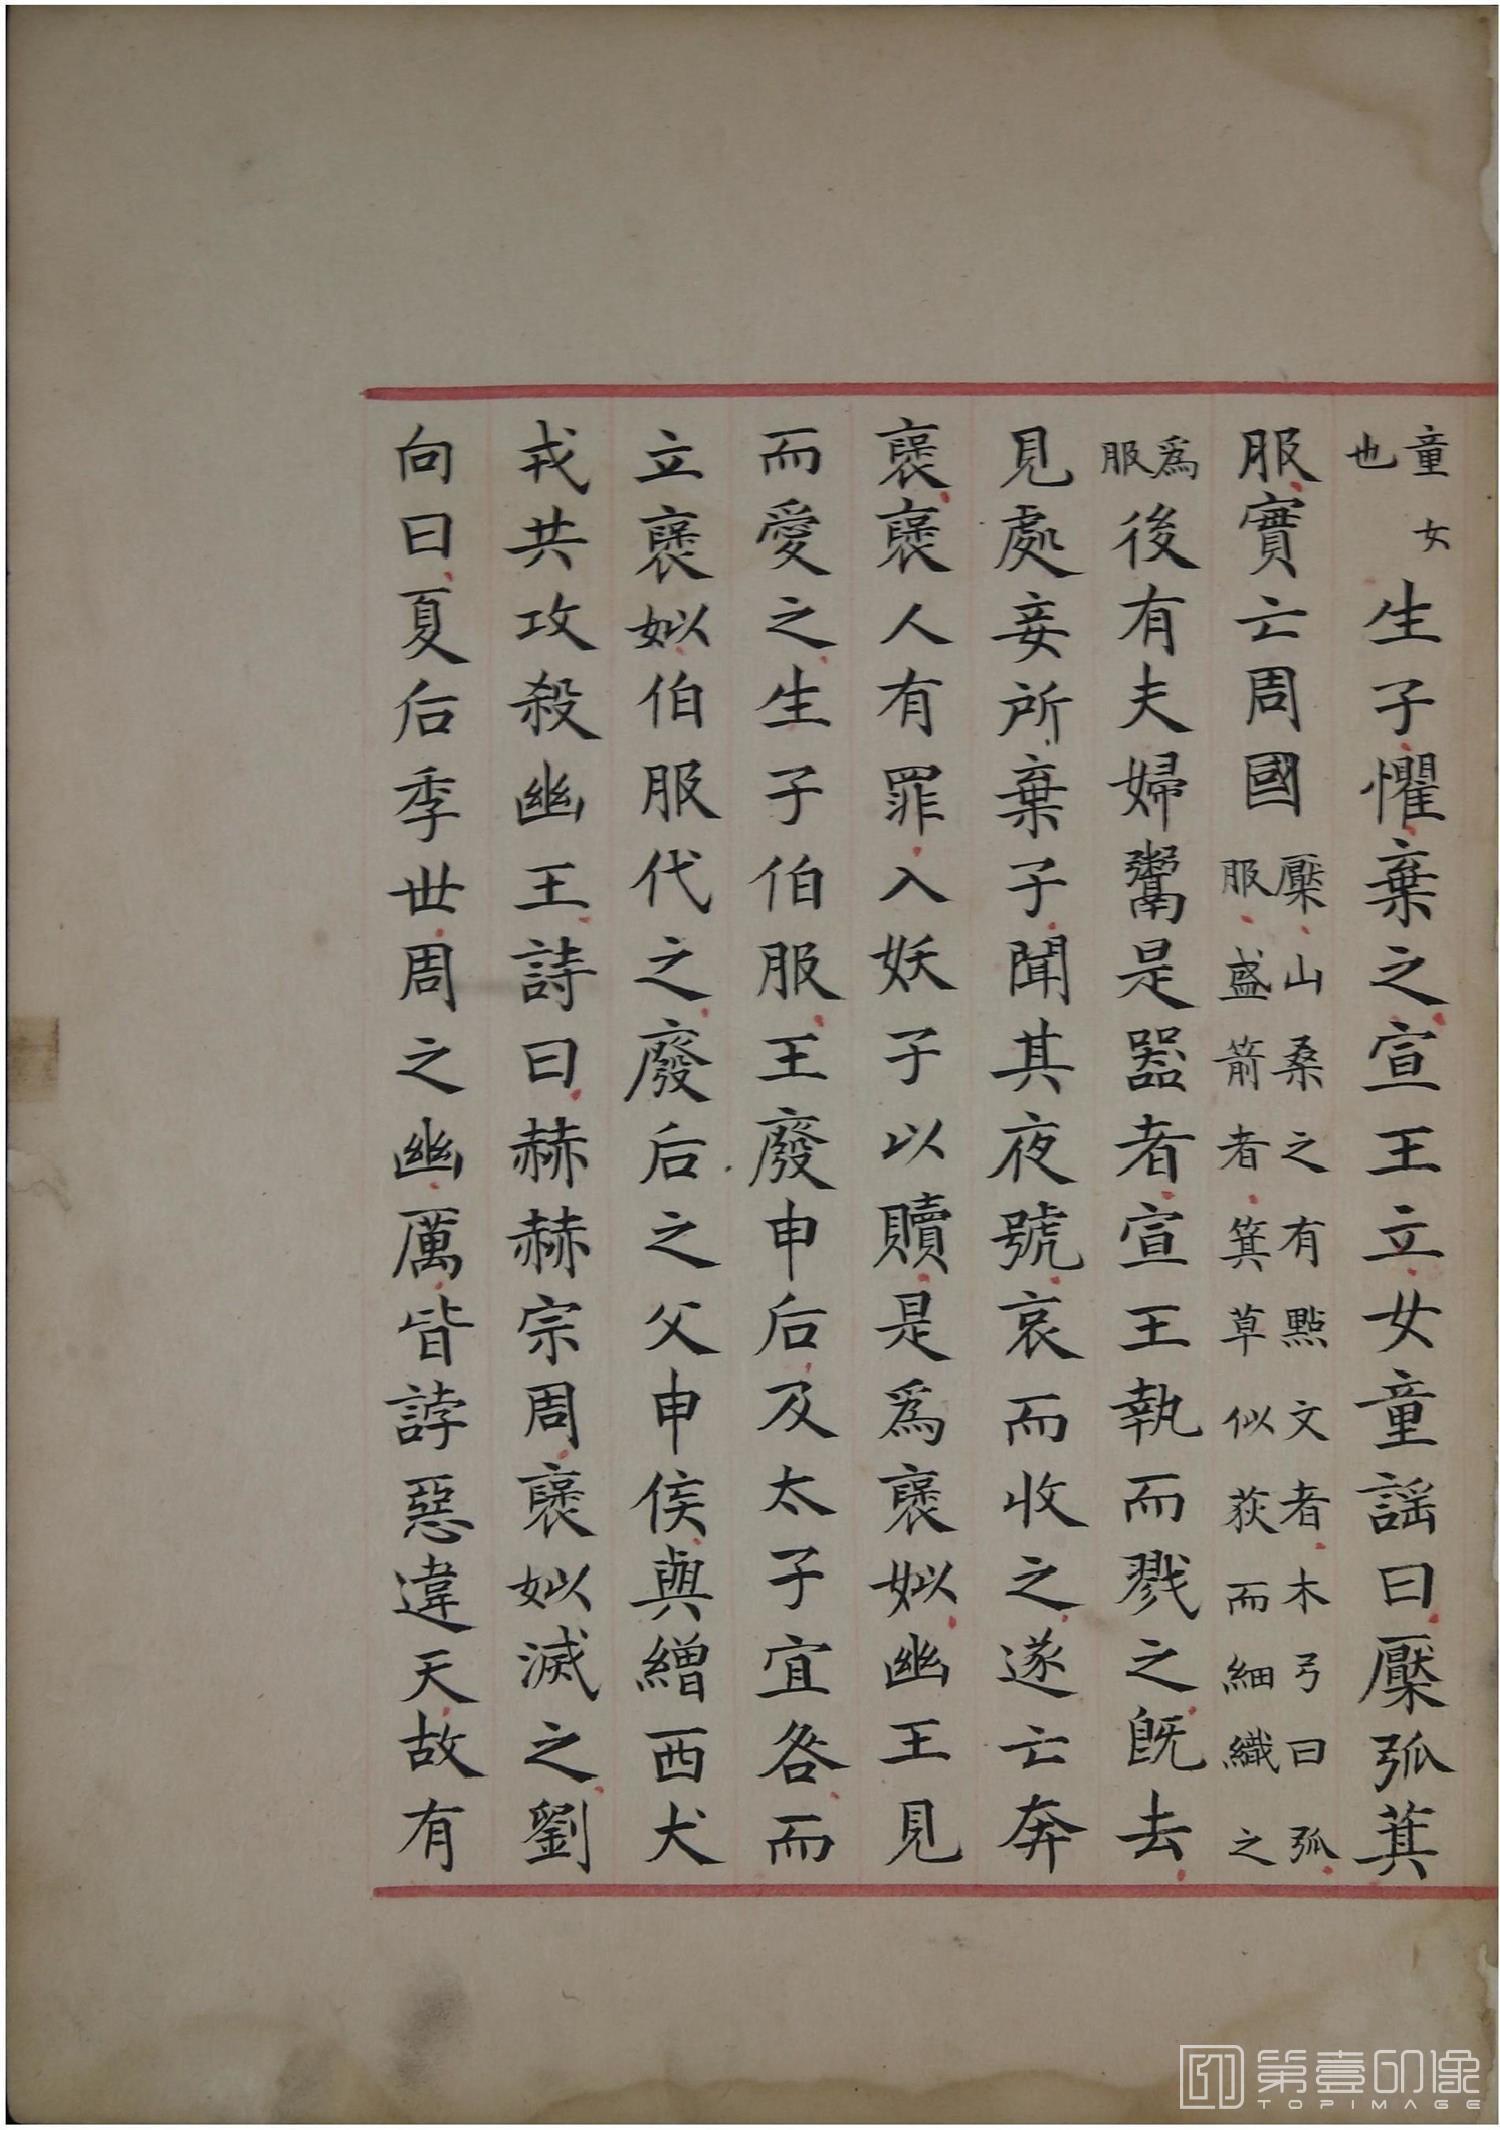 童女也生子懼棄之宣王立女童謡曰檿弧萁
服實亡周國檿山桑之有點文者木弓曰弧服盛箭者箕草似荻而細織之
爲服後有夫婦鬻是器者宣王執而戮之既去
見處妾所棄子聞其夜號哀而收之遂亡奔
襃襃人有罪入妖子以贖是爲襃姒幽王見
而愛之生子伯服王廢申后及太子宜咎而
立襃姒伯服代之廢后之父申侯與繒西犬
戎共攻殺幽王詩曰赫赫宗周襃姒滅之劉
向曰夏后季世周之幽厲皆誖惡違天故有
第壹印像
TOPIMAGE